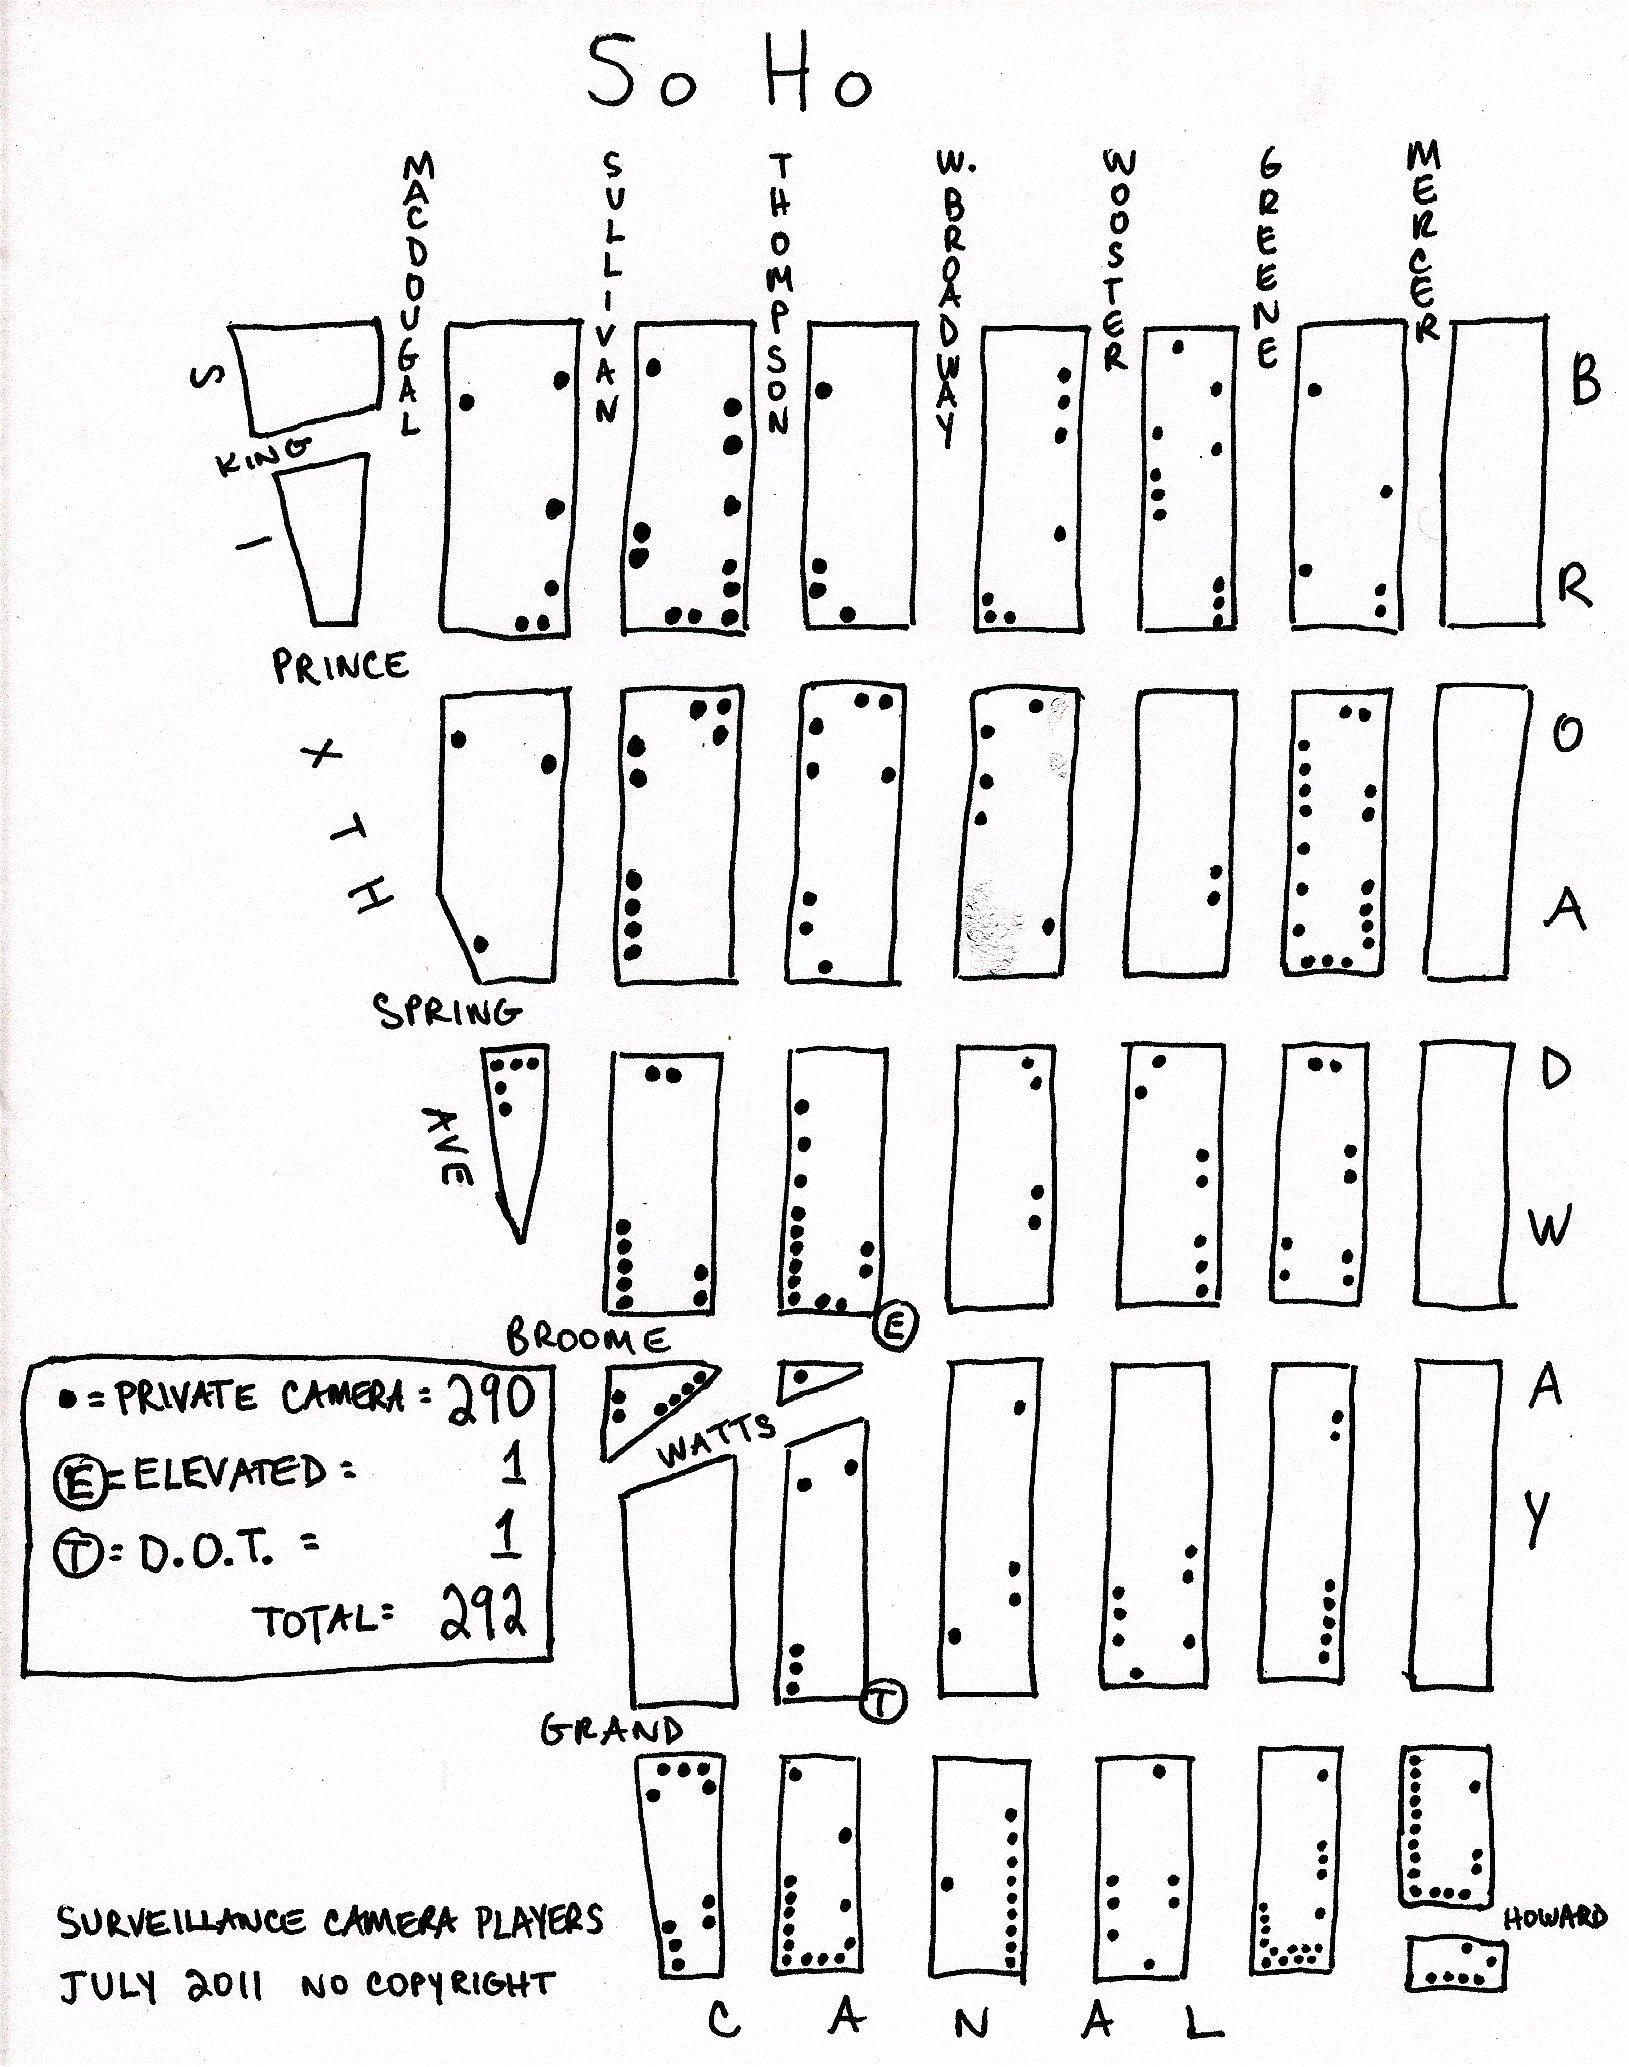 So Ho
MACDOUGAL
SULLIVAN
THOMPSON
W. BROADWAY
WOOSTER
GREENE
MERCER
BROADWAY
SIXTH AVE
KING
PRINCE
SPRING
BROOME
WATTS
GRAND
HOWARD
CANAL
• = PRIVATE CAMERA = 290
E = ELEVATED = 1
T = D.O.T. = 1
TOTAL = 292
SURVEILLANCE CAMERA PLAYERS
JULY 2011 NO COPYRIGHT
E
T